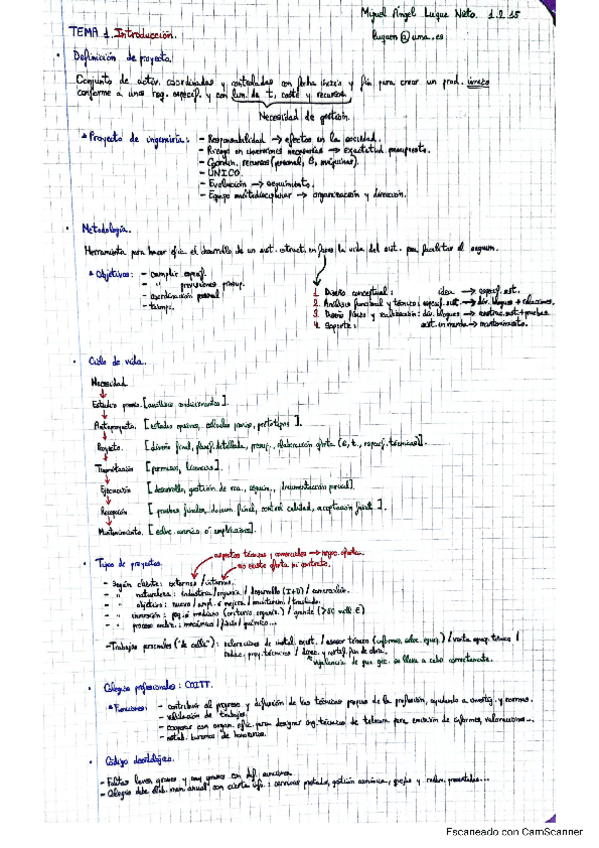 Miguel Ángel Luque Nieto. 1.2.35
TEMA 1. Introducción.
luquen@uma.es
Definición de proyecto.
Conjunto de activ. coordinadas y controladas con fecha inicio y fin para crear un prod. único
conforme a unos req. específ. y con lim. de t, coste y recursos.
Necesidad de gestión.
* Proyecto de ingeniería: - Responsabilidad → efectos en la sociedad.
- Riesgo en inversiones necesarias → exactitud presupuesto.
- Coordin. recursos (personal, €, máquinas).
- ÚNICO.
- Evaluación → seguimiento.
- Equipo multidisciplinar → organización y dirección.
Metodología.
Herramienta para hacer efic. el desarrollo de un sist. estruct. en fases la vida del sist. para facilitar el seguim.
* Objetivos: - cumplir especif.
- " previsiones presup.
- coordinación personal
- tiempo.
1. Diseño conceptual: idea → especif. sist.
2. Análisis funcional y técnico: especif. sist. → div. bloques + relaciones.
3. Diseño físico y realización: div. bloques → construc. sist. + pruebas
4. Soporte: sist. en marcha → mantenimiento.
Ciclo de vida.
Necesidad
Estudio previo. [análisis condicionantes].
Anteproyecto. [estudios opciones, cálculos previos, prototipos].
Proyecto. [diseño final, planif. detallada, presup., elaboración oferta (€, t., especif. técnicas)].
Tramitación [permisos, licencias].
Ejecución [desarrollo, gestión de rec., seguim., documentación parcial].
Recepción [pruebas finales, docum. final, control calidad, aceptación final].
Mantenimiento. [sobre servicio o explotación].
Tipos de proyectos.
aspectos técnicos y comerciales → nego. oferta.
no existe oferta ni contrato.
- Según cliente: externos / internos.
- " naturaleza: industria / / desarrollo (I+D) /
- " objetivo: nuevo / ampl. o mejora / / traslado.
- " inversión: peq. o mediano / grande (>50 mill €)
- " proceso indus.: mecánico / físico / químico...
- Trabajos personales ("de calle"): valoraciones de instal. exist. / asesor técnico / venta equip. técnico /
redac. proy. técnicos / direc. y certif. fin de obra.
vigilancia de que se lleva a cabo correctamente.
Colegios profesionales: COITT.
* Funciones: - contribuir al progreso y difusión de las técnicas propias de la profesión, ayudando a investig. y normas.
- validación de trabajos.
- cooperar con organ. ofic. para designar ing. técnicos de telecom para emisión de informes, valoraciones...
- estab. baremos de honorarios.
Código deontológico.
- Faltas leves, graves y muy graves con dif. sanciones.
- Colegio debe elab. mem. anual con cierta info.: servicios prestados, gestión económica, quejas y reclam. presentadas...
Escaneado con CamScanner